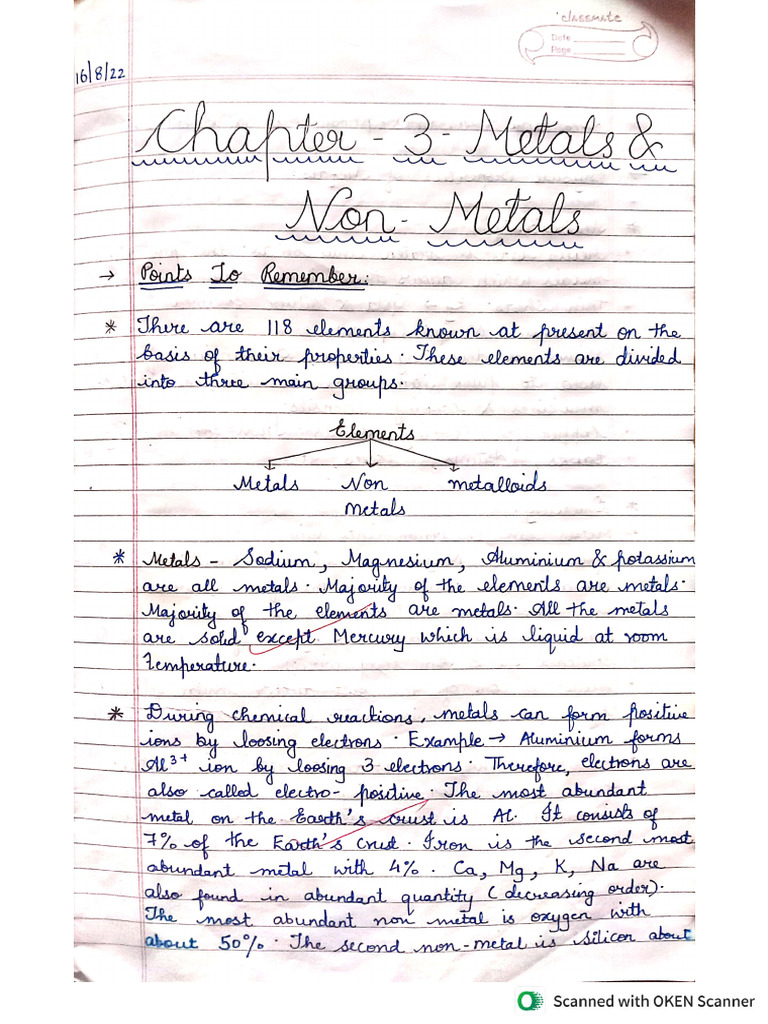 classmate
Date
Page
16/8/22
Chapter - 3 - Metals &
Non - Metals
→ Points To Remember:
* There are 118 elements known at present on the
basis of their properties. These elements are divided
into three main groups.
Elements
Metals Non metalloids
metals
* Metals - Sodium, Magnesium, Aluminium & potassium
are all metals. Majority of the elements are metals.
Majority of the elements are metals. All the metals
are solid except Mercury which is liquid at room
temperature.
* During chemical reactions, metals can form positive
ions by loosing electrons. Example → Aluminium forms
Al³⁺ ion by loosing 3 electrons. Therefore, electrons are
also called electro- positive. The most abundant
metal on the Earth's crust is Al. It consists of
7% of the Earth's crust. Iron is the second most
abundant metal with 4%. Ca, Mg, K, Na are
also found in abundant quantity (decreasing order).
The most abundant non metal is oxygen with
about 50%. The second non-metal is silicon about
Scanned with OKEN Scanner